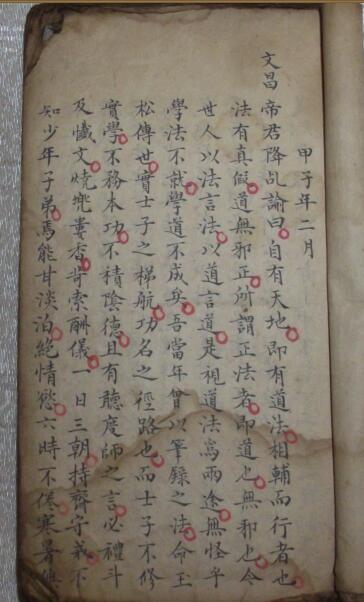 甲子年二月
文昌帝君降乩諭曰自有天地即有道法相輔而行者也
法有真假道無邪正所謂正法者即道也無邪也今
世人以法言法以道言道是視道法為兩途無怪乎
學法不就學道不成矣吾當年曾以筆錄之法命玉
松傳世實士子之梯航功名之徑路也而士子不修
實學不務本功不積陰德且有聽度師之言必禮斗
及懺文燒兠婁香索酬儀一日三朝持齊守戒不
知少年子弟焉能甘淡泊絕情慾六時不倦寒暑